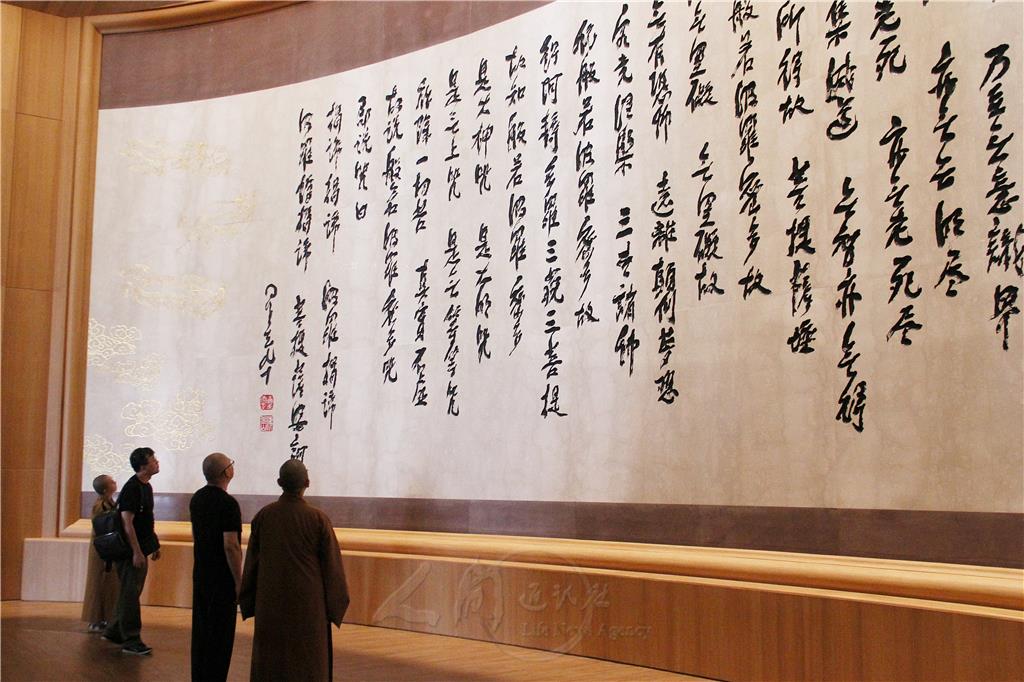 乃至无意識界
亦无无明尽
老死 亦无老死尽
集滅道 无智亦无得
所得故 菩提薩埵
般若波羅蜜多故
无罣礙 无罣礙故
无有恐怖 遠離顛倒夢想
究竟涅槃 三世諸佛
依般若波羅蜜多故
得阿耨多羅三藐三菩提
故知般若波羅蜜多
是大神咒 是大明咒
是无上咒 是无等等咒
能除一切苦 真實不虛
故說般若波羅蜜多咒
即說咒曰
揭諦揭諦 波羅揭諦
波羅僧揭諦 菩提薩婆訶
人間通訊社
Life News Agency